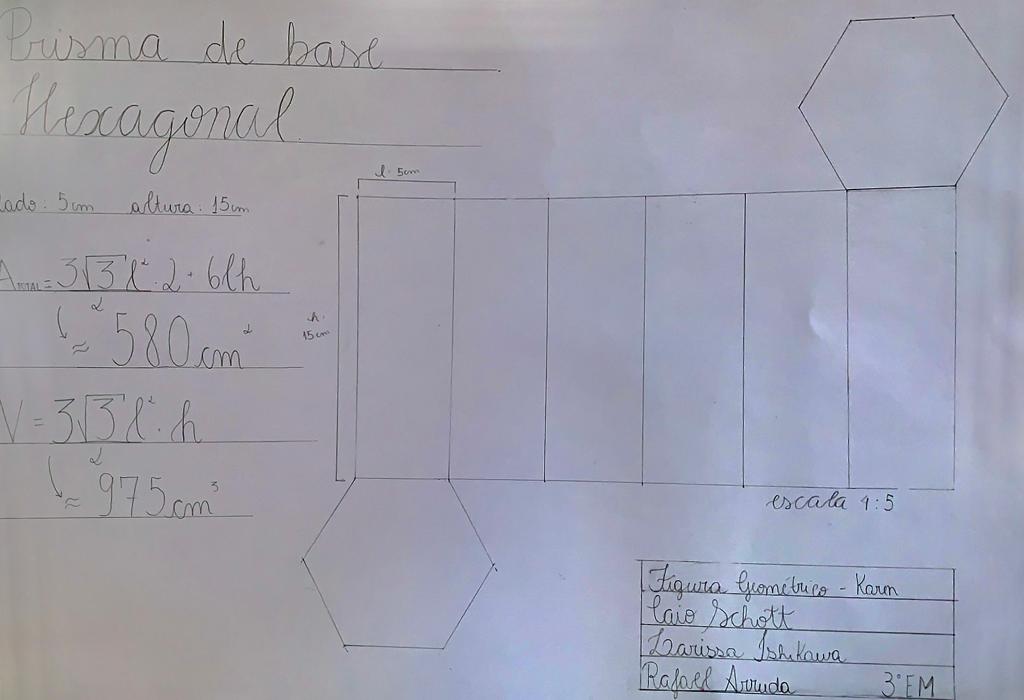 Prisma de base
Hexagonal.
lado: 5cm altura: 15cm
l: 5cm
A TOTAL = 3√3 l² · 2 + 6lh
2
≈ 580cm²
h:
15cm
V = 3√3 l² · h
2
≈ 975cm³
escala 1:5
Figura Geométrico - Karin
Caio Schott
Larissa Ishikawa
Rafael Arruda 3°EM